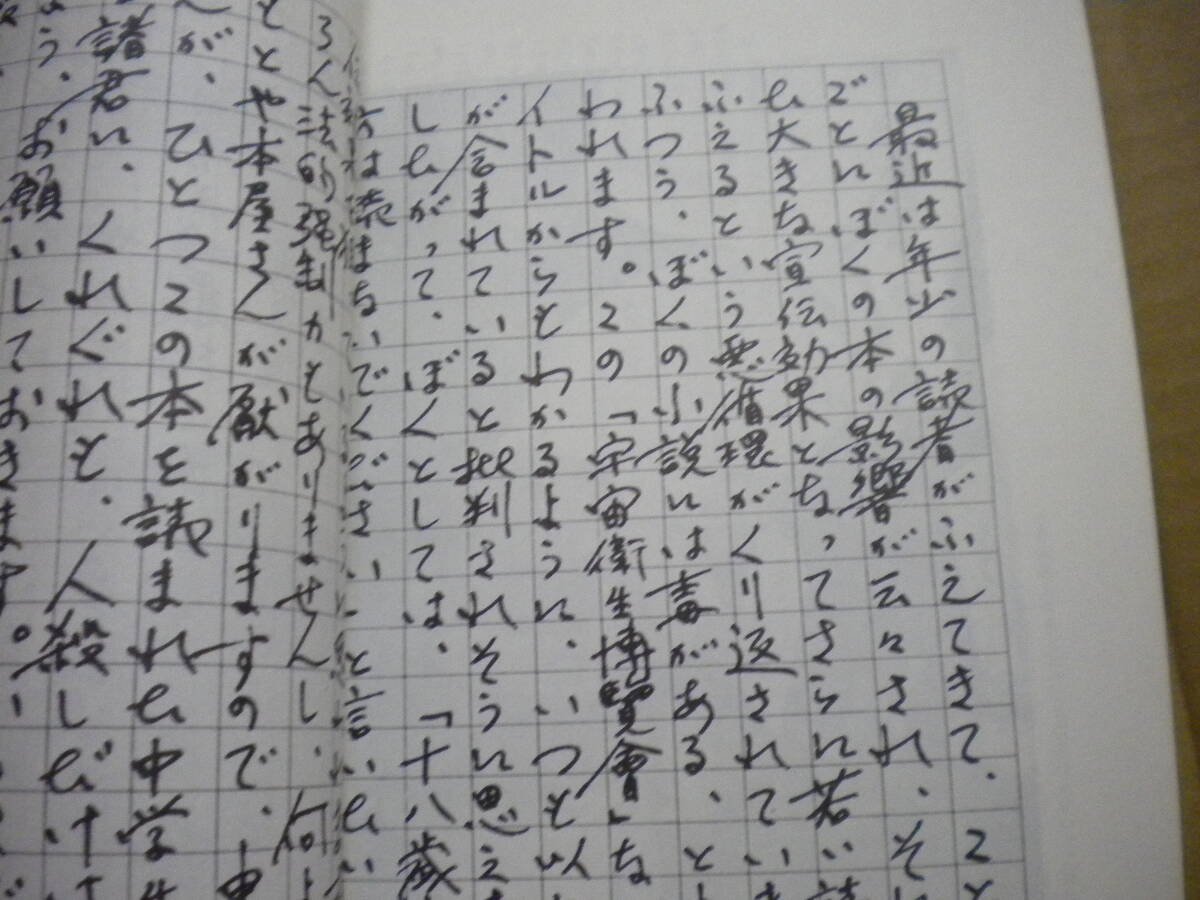 最近は年少の読者がふえてきて、こと
でとにぼくの本の影響が云々され、それ
も大きな宣伝効果となってさらに若い読
ふえるという悪循環がくり返されていま
ふつう、ぼくの小説には毒がある、とい
われます。この「宇宙衛生博覽會」な
イトルからとわかるように、いつと以
が含まれていると批判されそうに思え
しもがって、ぼくとしては、「十八歳
方は読まないでください」と言いもい
ろん法的強制力とありませんし、何よ
とや本屋さんが厭がりますので、申
が、ひとつこの本を読まれも中学生
諸君に、くれぐれと、人殺しだけ
う、お願いしておきます。